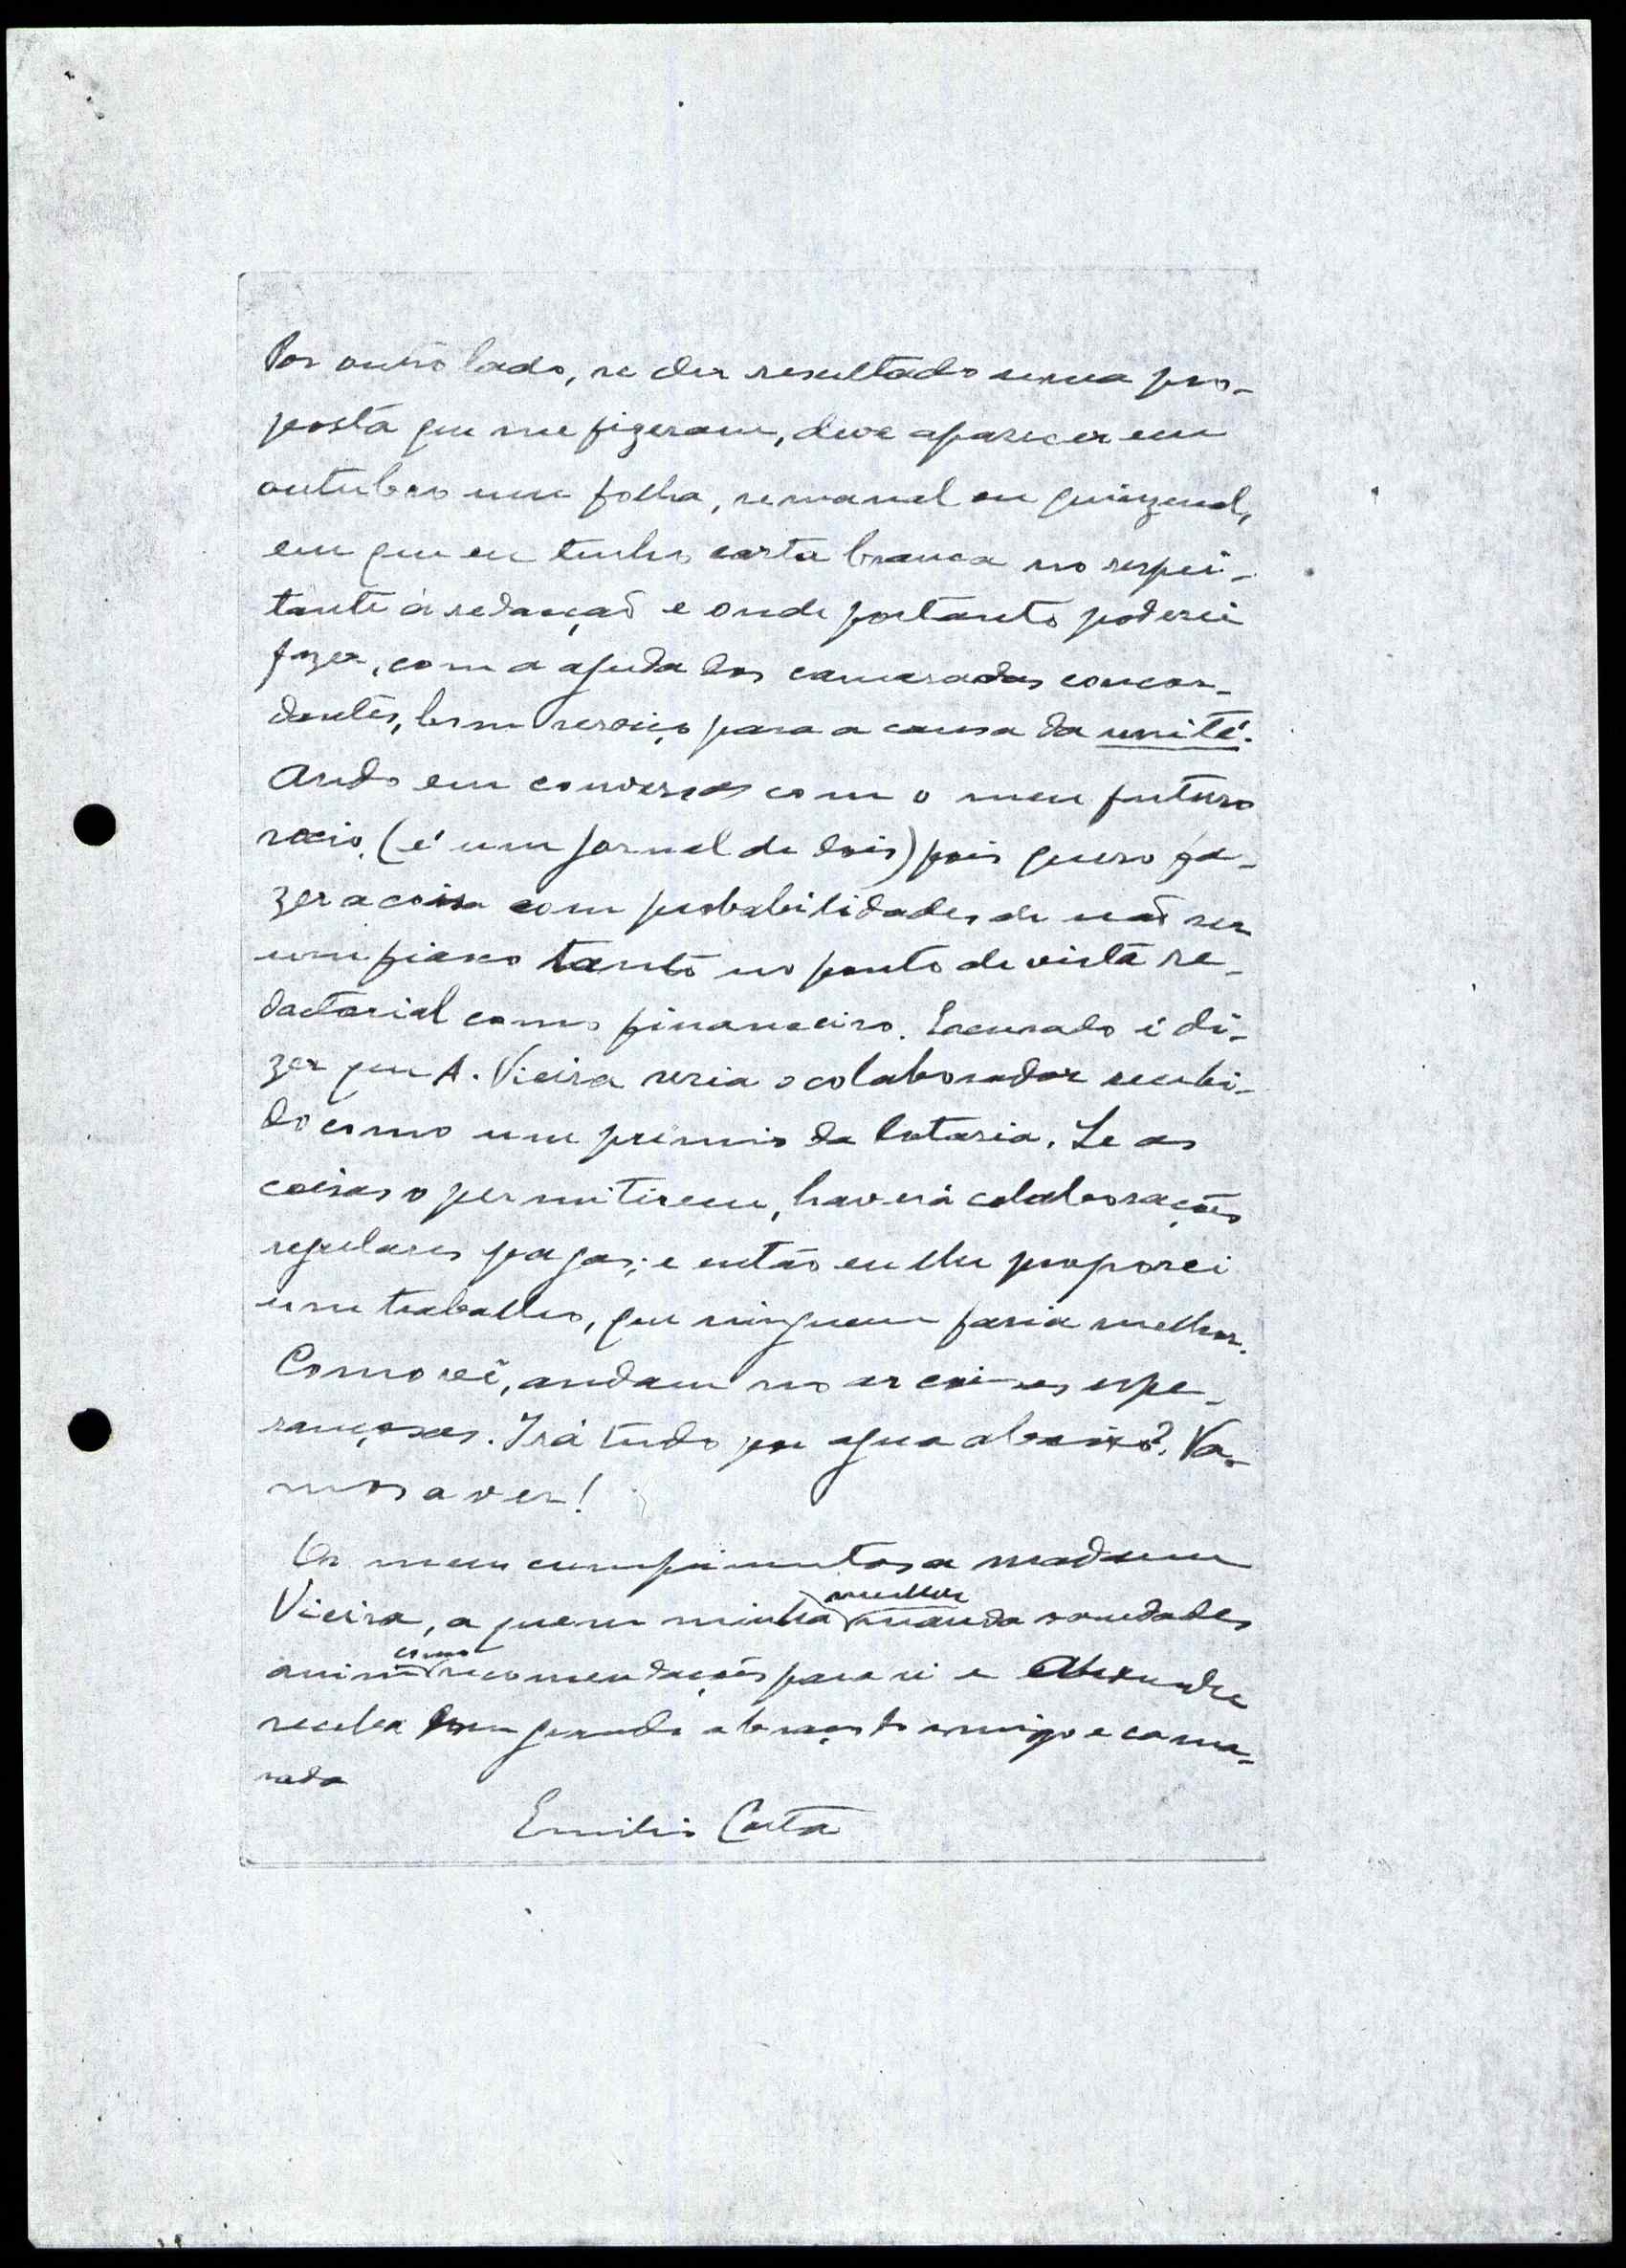 Por outro lado, se der resultado uma pro-
posta que me fizeram, deve aparecer em
outubro uma folha, semanal ou quinzenal,
em que eu tenho carta branca no respei-
tante á redacção e onde portanto poderei
fazer, com a ajuda dos camaradas concor-
dantes, bom serviço para a causa da unité.
Ando em conversas com o meu futuro
socio (é um jornal de dois) pois quero fa-
zer a coisa com probabilidades de não ser
um fiasco tanto no ponto de vista re-
dactorial como financeiro. Escusado é di-
zer que A. Vieira seria o colaborador recebi-
do como um premio da lotaria. Se as
coisas o permitirem, haverá colaborações
regulares pagas; e então eu lhe proporei
um trabalho, que ninguem faria melhor.
Como vê, andam no ar coisas espe-
rançosas. Irá tudo por agua abaixo? Va-
mos a ver!
Os meus cumprimentos a madame
Vieira, a quem minha mulher manda saudades
assim como recomendações para si e Alexandre
receba um grande abraço do amigo e cama-
rada
Emilio Costa